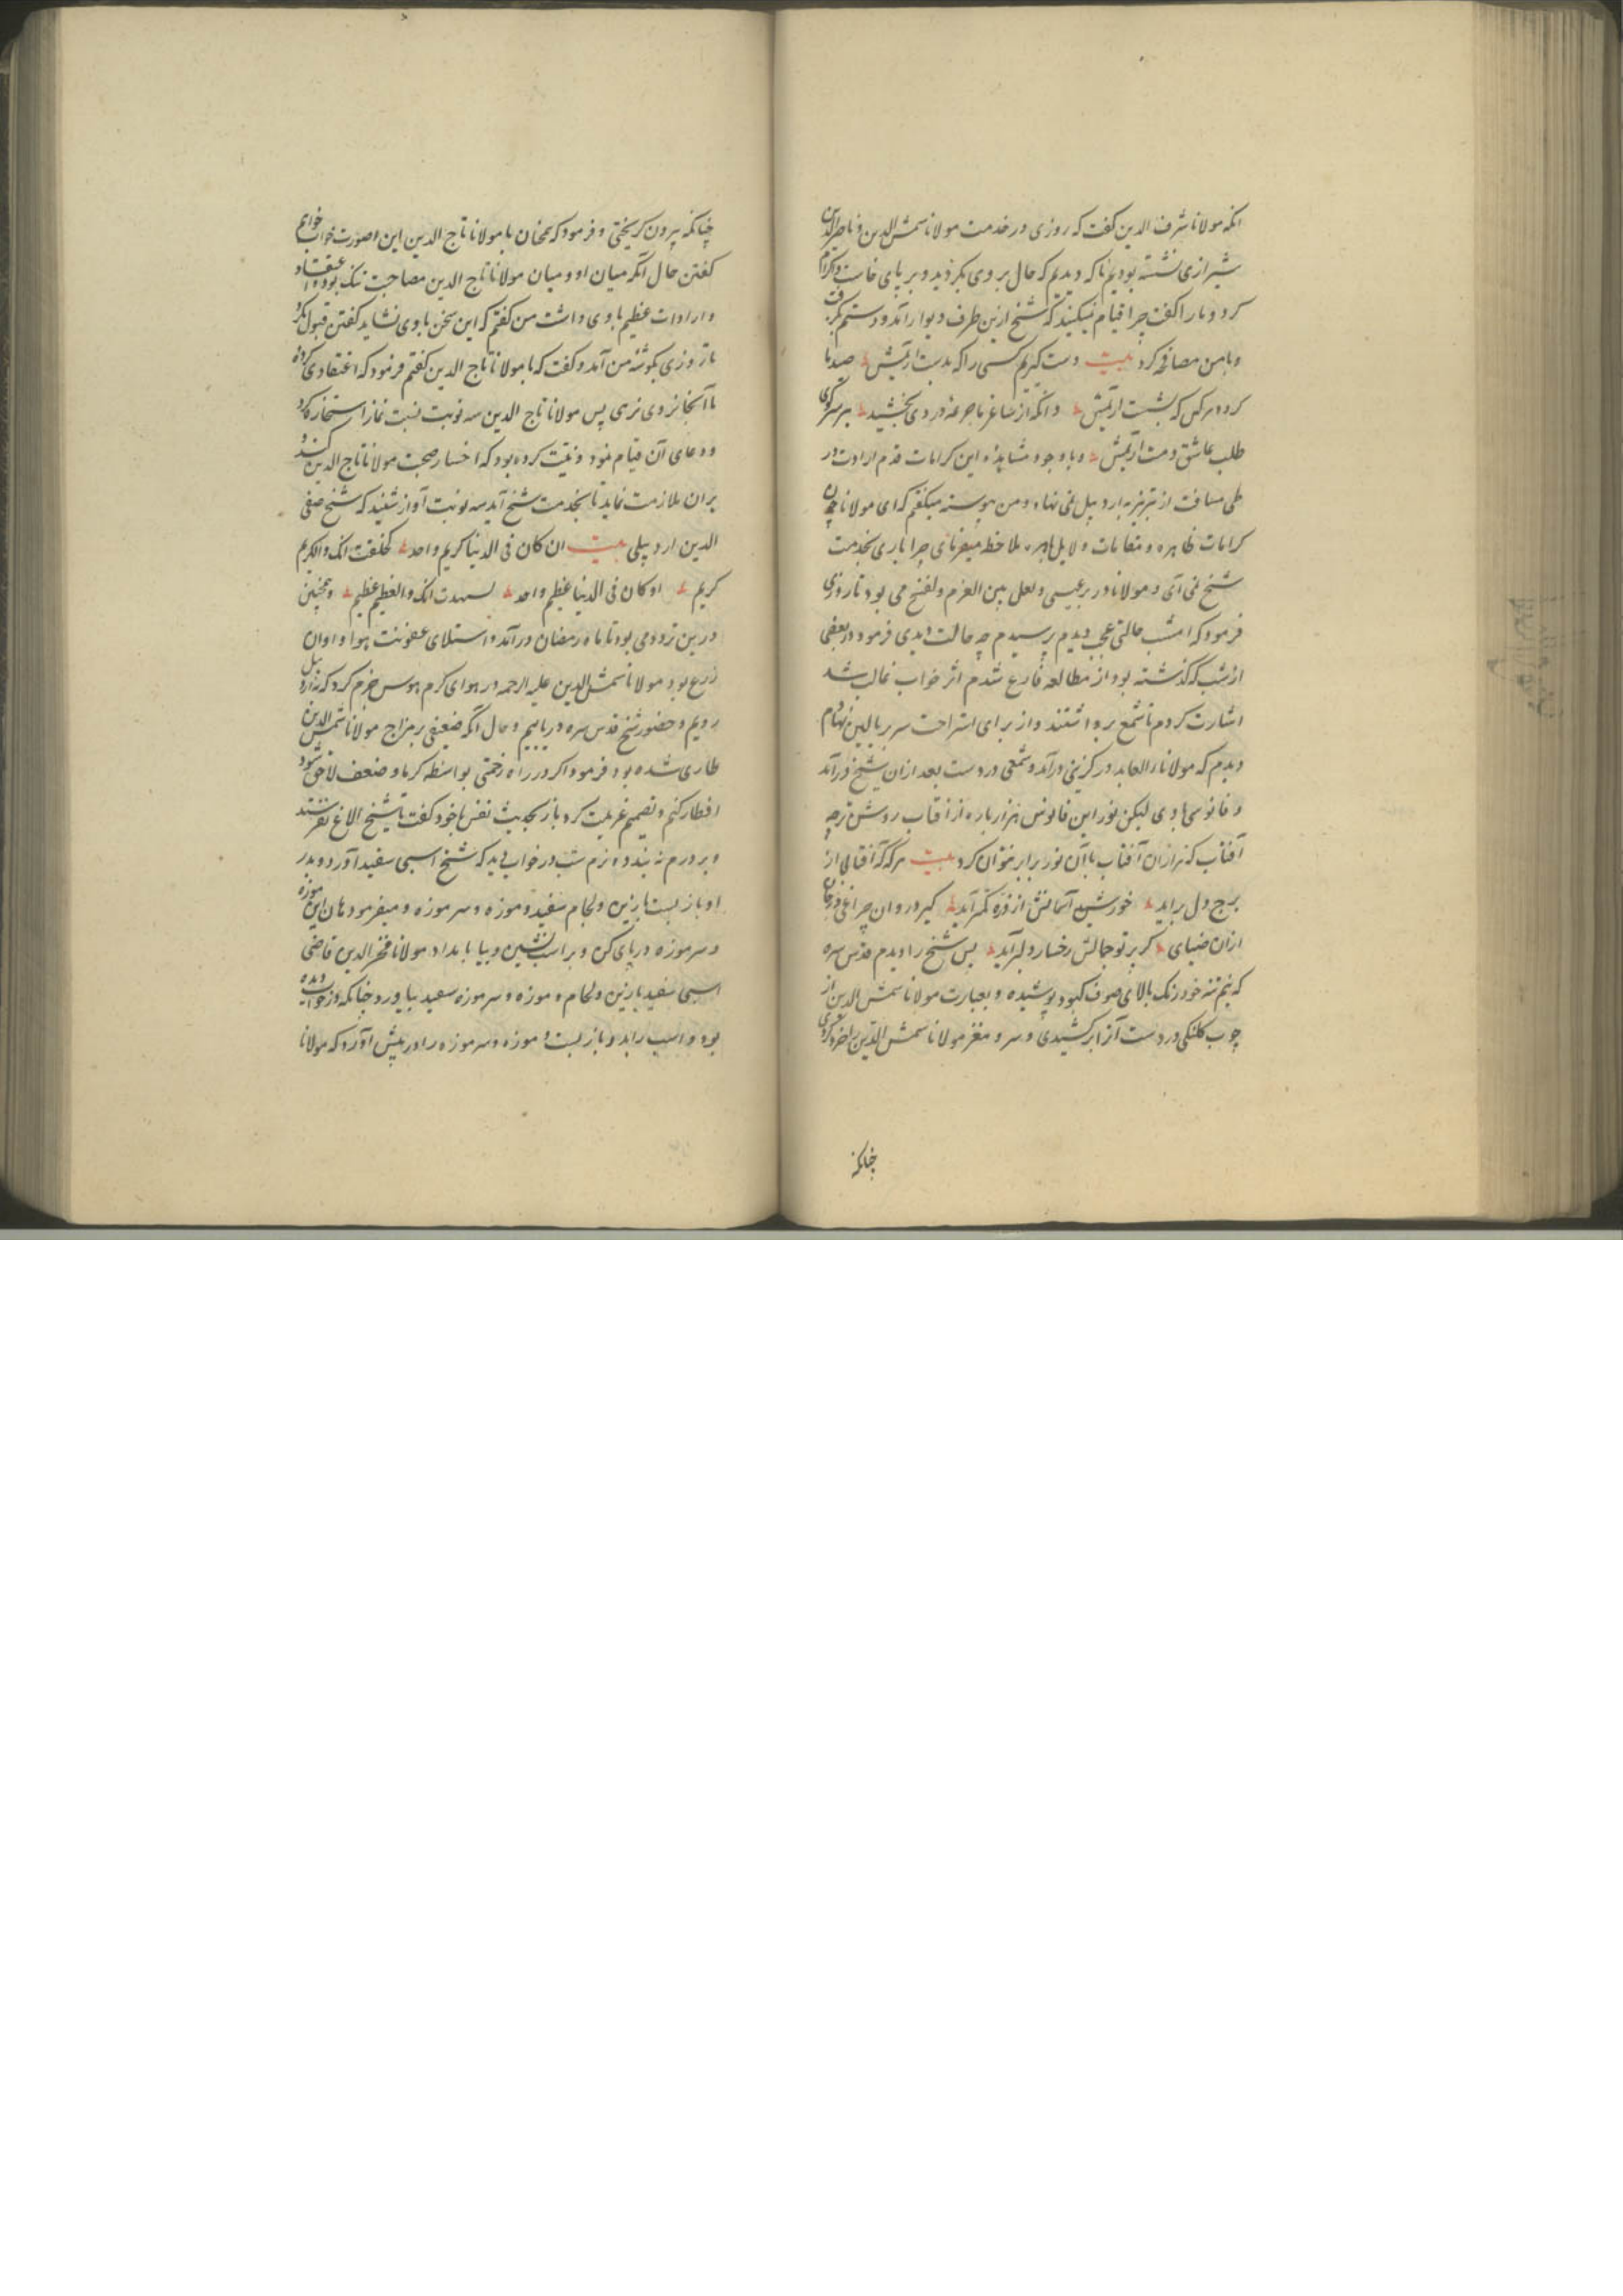 انکه مولانا شرف الدین کفت که روزی در خدمت مولانا شمس الدین و ناصرالدین
شیرازی نشسته بودیم ناکه دیدیم که حال بر وی بکردید و بر پای خاست و اکرام
کرد و ما را کفت چرا قیام نمیکنید که شیخ ازین طرف دیوار آمد و دستم بکرفت
و با من مصافحه کرد بیت دست کیریم کسی را که بدست ارتیش صد با
کرده هرکس که بشست ارتیش وانکه از ساغر ما جرعه دردی بخشید بر سر کوی
طلب عاشق و مست ارتیش و با وجود مشاهده این کرامات قدم ارادت در
طی مسافت از تبریز به اردبیل نمی نهاد و من پیوسته میکفتم که ای مولانا چون
کرامات ظاهره و مقامات و لایل باهره ملاحظه میفرمائی چرا باری بخدمت
شیخ نمی آی و مولانا در بر عیسی و لعل بین العزم و لفسخ می بود تا روزی
فرمود که امشب حالتی عجب دیدم پرسیدم چه حالت دیدی فرمود در بعضی
از شب که کذشته بود از مطالعه فارغ شدم اثر خواب غالب شد
اشارت کردم تا شمع برداشتند و از برای استراحت سر ببالین نهادم
دیدم که مولانا العابد در کزینی درآمد و شمعی در دست بعد ازان شیخ درآمد
و فانوسی با وی لیکن نور این فانوس هزار باره از آفتاب روشن تر چه
آفتاب که هزاران آفتاب با آن نور برابر نتوان کرد بیت هرکه که آفتابی از
برج دل براید خورشید آسمانش از ذره کمتر آید کیرد روان چراغی
ازان ضیای کر پرتو جمالش رخسار دلبر آید پس شیخ را دیدم قدس سره
که نیم تنه خود رنک بالای صوف کبود پوشیده و بعبارت مولانا شمس الدین از
چوب کلنکی در دست آنرا برکشیدی و سر و مغز مولانا شمس الدین را خرد کردی
چنانکه
چنانکه بیرون کریختی و فرمود که بمخان با مولانا تاج الدین این صورت خواب خواهم
کفتن حال آنکه میان او و میان مولانا تاج الدین مصاحبت نیک بود و اعتقاد
و ارادات عظیم با وی داشت من کفتم که این سخن با وی نشاید کفتن قبول نکرد
تا روزی بکوشه من آمد و کفت که با مولانا تاج الدین کفتم فرمود که اعتقادی کرده
تا آنجا نروی نرهی پس مولانا تاج الدین سه نوبت نیت نماز استخاره کرد
و دعای آن قیام نمود و نیت کرده بود که اختیار صحبت مولانا تاج الدین کند و
بران ملازمت نماید تا بخدمت شیخ آید سه نوبت آواز شنید که شیخ صفی
الدین اردبیلی بیت ان کان فی الدنیا کریم واحد لحلفت انک والکریم
کریم او کان فی الدنیا عظیم واحد لشهدت انک والعظیم عظیم و همچنین
درین تردد می بود تا ماه رمضان درآمد و استیلای عفونت هوا و اوان
زرع بود مولانا شمس الدین علیه الرحمه در هوای کرم هوس جزم کرد که به اردبیل
رویم و حضور شیخ قدس سره دریابیم و حال آنکه ضعیفی بر مزاج مولانا شمس الدین
طاری شده بود فرمود اکر در راه زحمتی بواسطه کرما و ضعف لاحق شود
افطار کنم و تصمیم عزیمت کرد باز بحدیث نفس با خود کفت تا شیخ الاغ نفرستد
و بر درم نه بندد نروم شب در خواب دید که شیخ اسبی سفید آورد و بدر
او باز بست با زین و لجام سفید و موزه و سرموزه و میفرمود هان این موزه
و سرموزه در پای کن و بر اسب نشین و بیا بامداد مولانا فخرالدین قاضی
اسبی سفید با زین و لجام و موزه و سرموزه سفید بیاورد چنانکه در خواب دیده
بود و اسب را بدر باز بست و موزه و سرموزه را در پیش آورد که مولانا